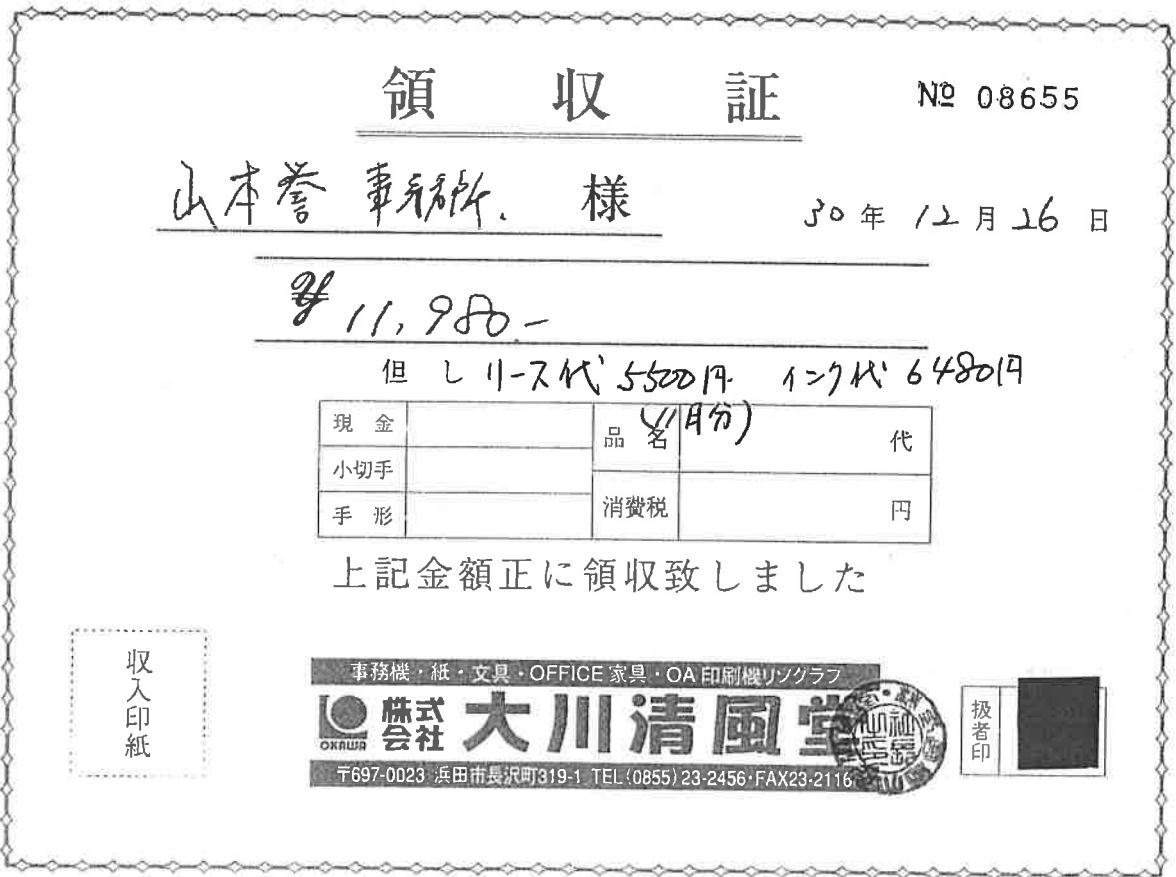 領収証
№ 08655
山本誉 事務所. 様
30年 12月 26日
¥11,980.-
但し リース代 5500円. インク代 6480円
(11月分)
現金
小切手
手形
品名 代
消費税 円
上記金額正に領収致しました
収入印紙
事務機・紙・文具・OFFICE家具・OA印刷機リソグラフ
OKAWA 株式会社 大川清風堂
〒697-0023 浜田市長沢町319-1 TEL(0855)23-2456・FAX23-2116
扱者印